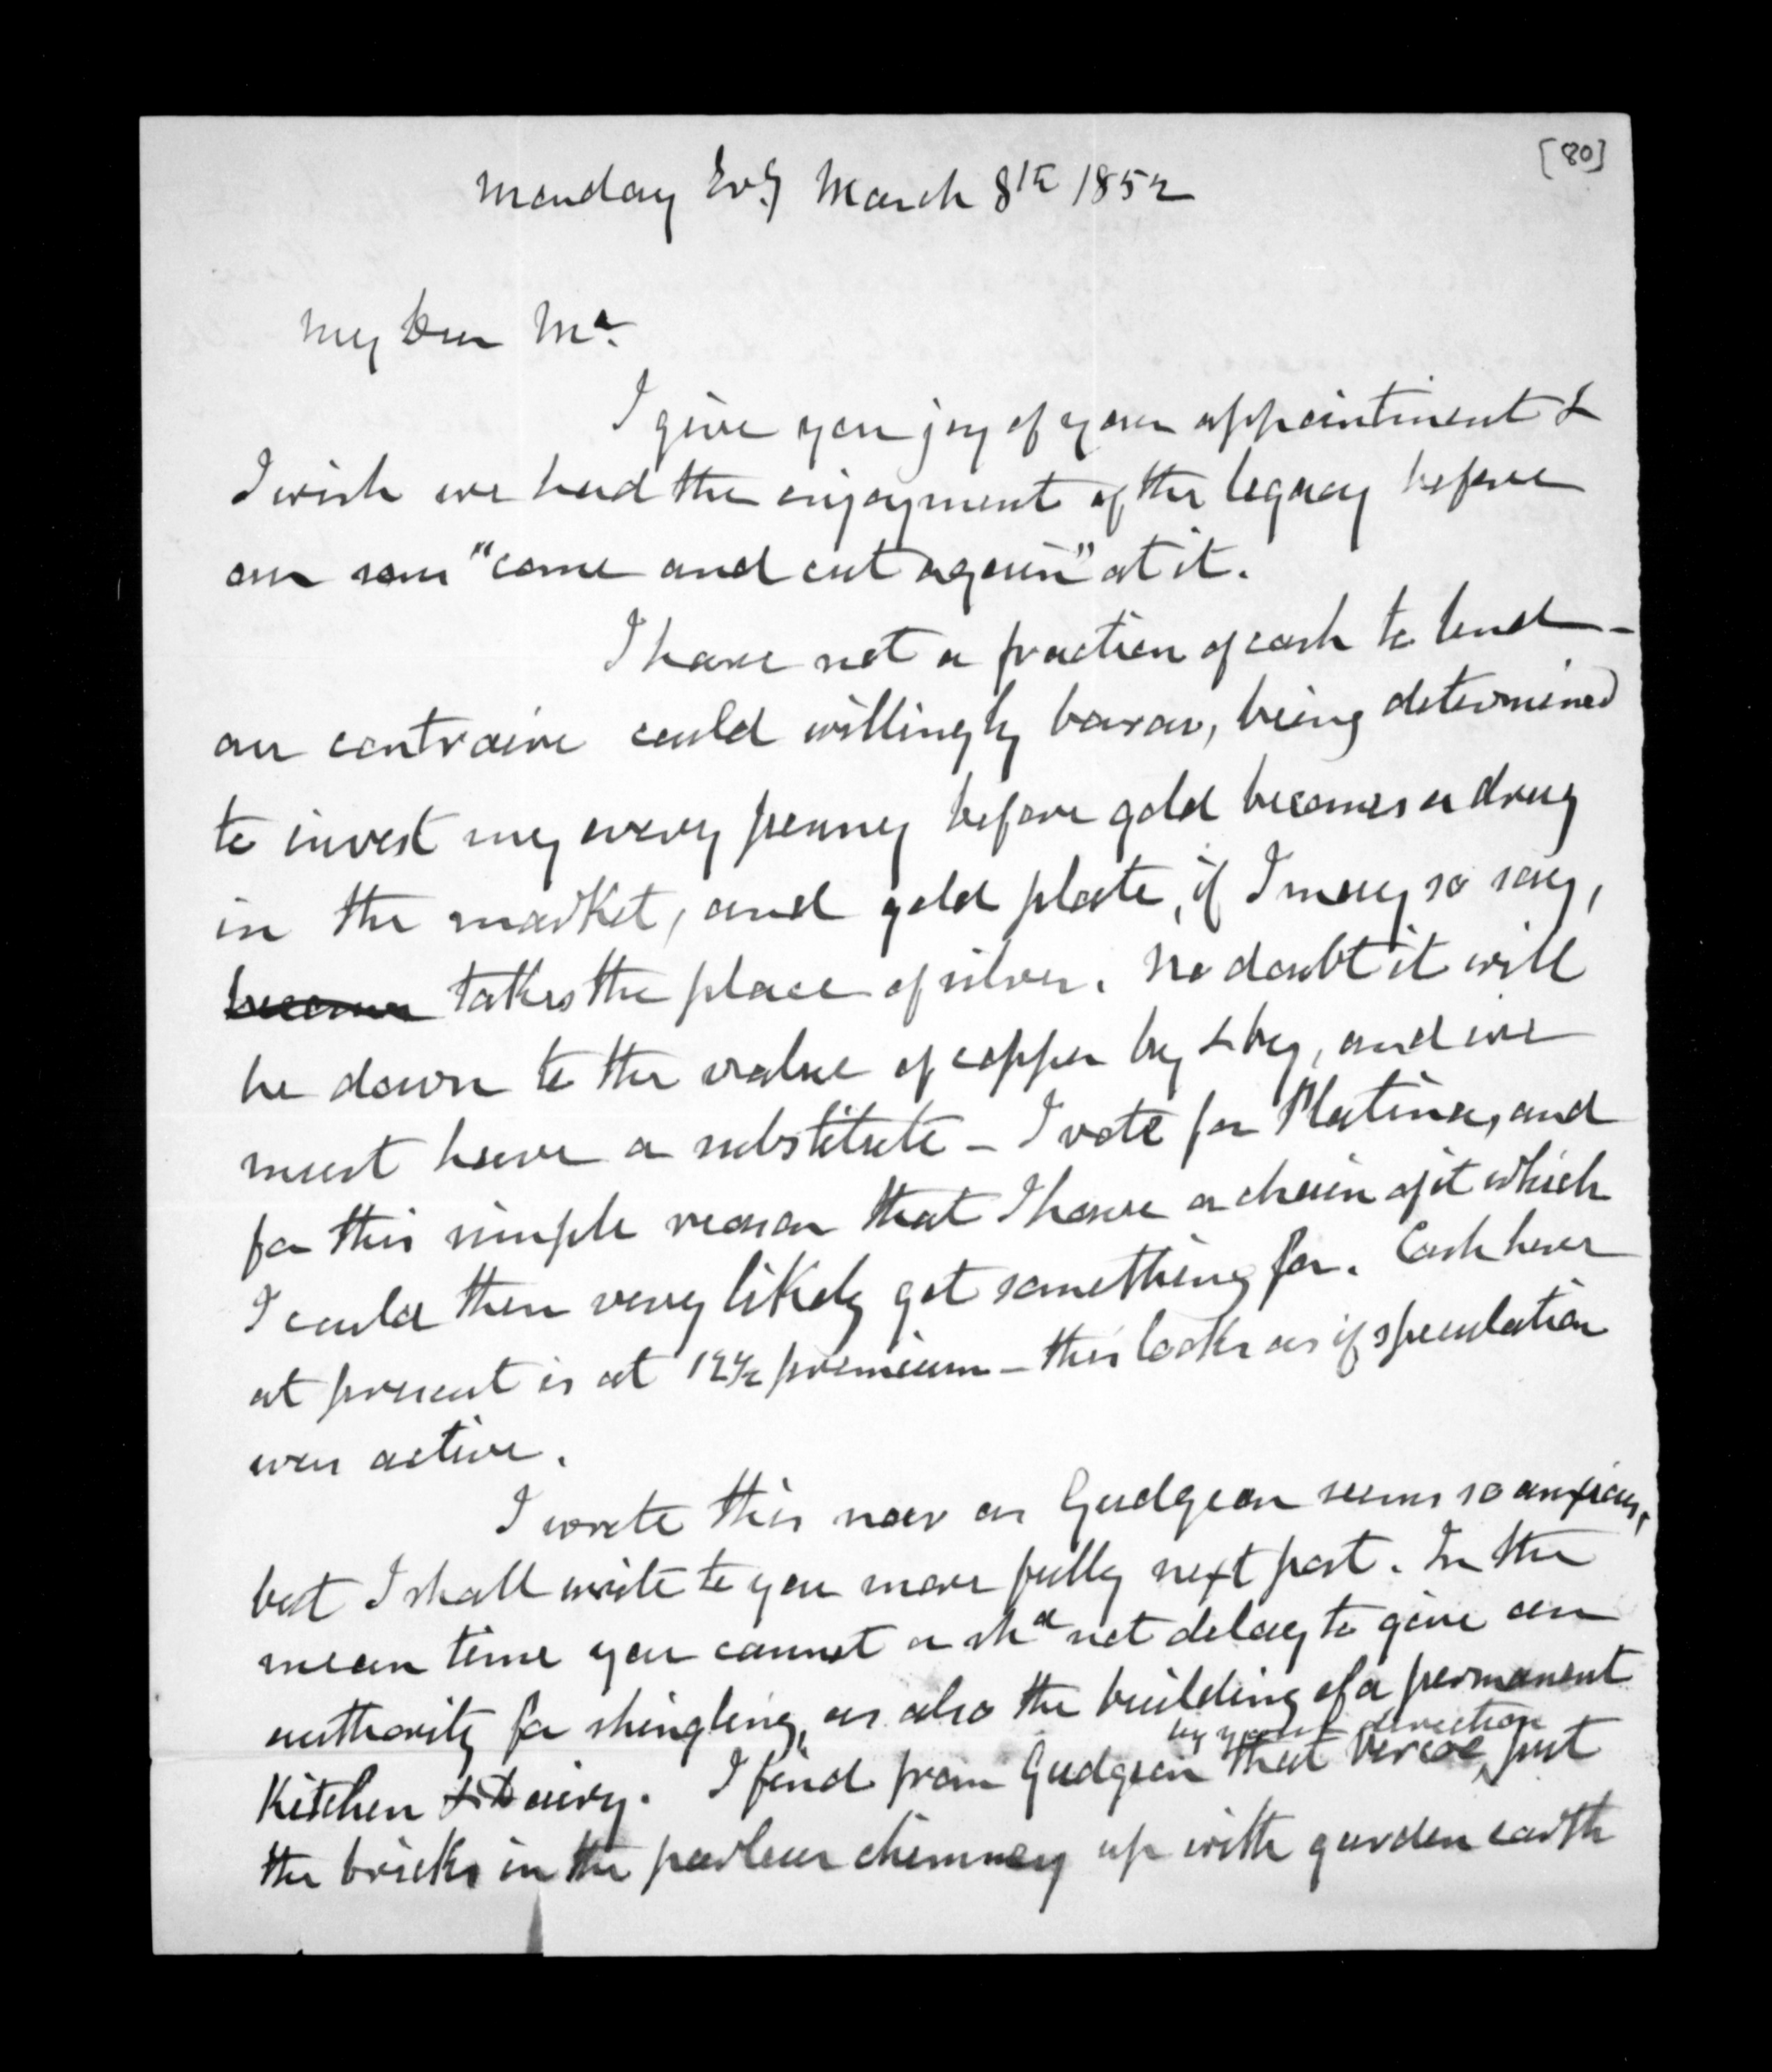 [80]
Monday Evg March 8th 1852
My Dear Mc.
I give you joy of your appointment &
I wish we had the enjoyment of the legacy before
our sons "come and cut again" at it.
I have not a fraction of cash to lend -
au contraire could willingly borrow, being determined
to invest my every penny before gold becomes a drug
in the market, and gold plate, if I may so say,
becomes takes the place of silver. No doubt it will
be down to the value of copper by & bye, and we
must have a substitute - I vote for Platina, and
for this simple reason that I have a chain of it which
I could then very likely get something for. Cash here
at present is at 12½ premium - this looks as if speculation
was active.
I wrote this now as Gudgeon seems so anxious,
but I shall write to you more fully next post. In the
mean time you cannot or shd not delay to give an
authority for shingling, as also the building of a permanent
by your direction
Kitchen & Dairy. I find from Gudgeon that Vercoe, put
the bricks in the parlour chimney up with garden earth